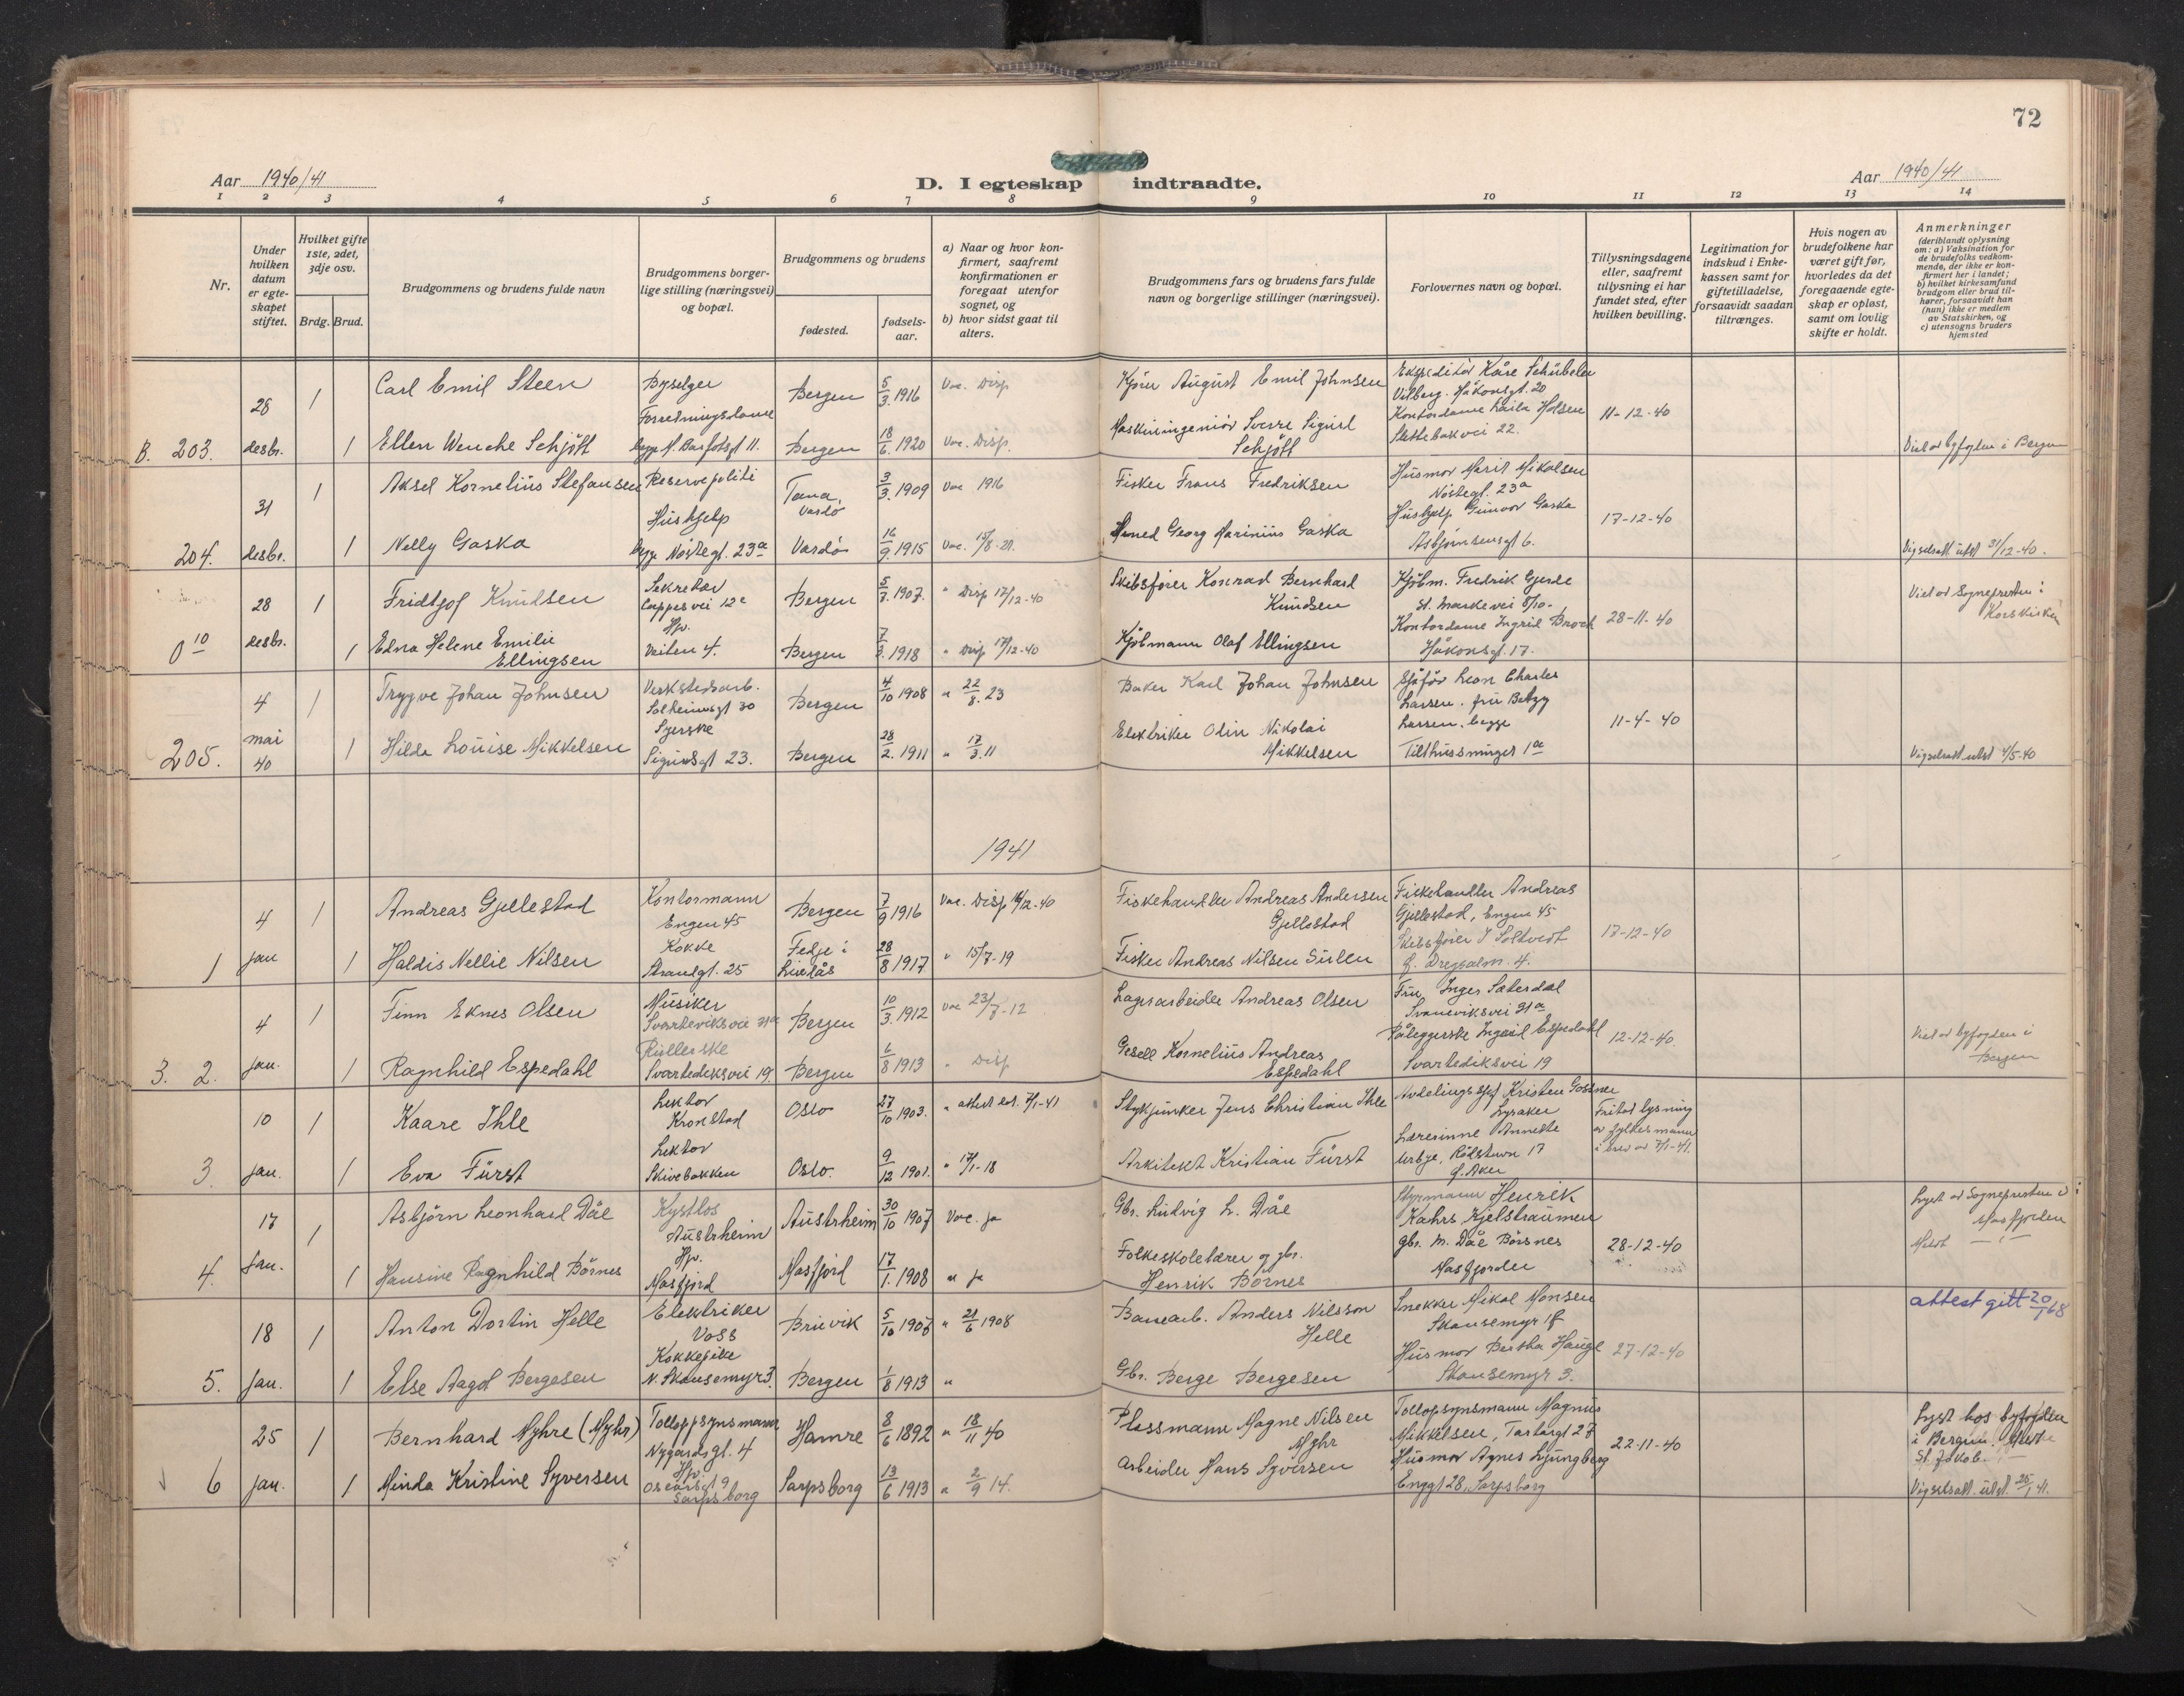 72
Aar 1940/41
D. I egteskap indtraadte.
Aar 1940/41
1 2 3 4 5 6 7 8 9 10 11 12 13 14
Nr.
Under hvilken datum er egteskapet stiftet.
Hvilket gifte 1ste, 2det, 3dje osv.
Brdg. Brud.
Brudgommens og brudens fulde navn
Brudgommens borgerlige stilling (næringsvei) og bopæl.
Brudgommens og brudens
fødested.
fødselsaar.
a) Naar og hvor konfirmert, saafremt konfirmationen er foregaat utenfor sognet, og
b) hvor sidst gaat til alters.
Brudgommens fars og brudens fars fulde navn og borgerlige stillinger (næringsvei).
Forlovernes navn og bopæl.
Tillysningsdagene eller, saafremt tillysning ei har fundet sted, efter hvilken bevilling.
Legitimation for indskud i Enkekassen samt for giftetilladelse, forsaavidt saadan tiltrænges.
Hvis nogen av brudefolkene har været gift før, hvorledes da det foregaaende egteskap er opløst, samt om lovlig skifte er holdt.
Anmerkninger
(deriblandt oplysning om: a) Vaksination for de brudefolks vedkommende, der ikke er konfirmert her i landet;
b) hvilket kirkesamfund brudgom eller brud tilhører, forsaavidt han (hun) ikke er medlem av Statskirken, og
c) utensogns bruders hjemsted
28 1 Carl Emil Steen Byselger Bergen 5/3. 1916 Vac. Disp Kjøru August Emil Johnsen Ekspeditör Kåre Schübeler
Vilberg. Håkonsgt. 20
Forretningsdame Kontordame Laila Holsen 11-12-40
B. 203. desbr. 1 Ellen Wenche Schjött begge H. Barfotsgt 11. Bergen 18/6. 1920 Vac. Disp. Maskiningeniör Sverre Sigurd Schjött Slettebakvei 22. Viet av byfogden i Bergen
31 1 Aksel Kornelius Stefansen Reservepoliti Tana, Vardö 3/3. 1909 Vac 1916 Fisker Frans Fredriksen Husmor Marit Mikalsen
Nöstegt. 23a
Hushjelp Hushjelp Gunvor Gaska 17-12-40
204. desbr. 1 Nelly Gaska begge Nöstegt. 23a Vardö 16/9. 1915 Vac. 15/8-29. Georg Marinius Gaska Asbjörnsensgt 6. Vigselsatt. utst 31/12-40.
28 1 Fridtjof Knudsen Sekretær Lappesvei 12c Bergen 5/7. 1907. " Disp 17/12-40 Skibsförer Konrad Bernhard Knudsen Kjöbm. Fredrik Gjerde
St. Markevei 8/10.
Viet av Sognepresten i Korskirken
Hp. Kontordame Ingrid Broch 28-11-40
0 10 desbr. 1 Edna Helene Emilie Ellingsen Veiten 4. Bergen 7/3. 1918 " Disp 17/12-40 Kjöbmann Olaf Ellingsen Håkonsgt. 17.
4 1 Trygve Johan Johnsen Verkstedsarb. Solheimsgt 30 Bergen 4/10 1908 " 22/8. 23 Baker Karl Johan Johnsen Sjåför Leon Charles
Larsen. fru Betzy
Syerske Larsen. begge 11-4-40
205. mai 40 1 Hilda Louise Mikkelsen Sigurdsgt 23. Bergen 28/2. 1911 " 17/3. 11 Elektriker Olin Nikolai Mikkelsen Vigselsatt utst 4/5-40
1941
4 1 Andreas Gjellestad Kontormann Engen 45 Bergen 7/9 1916 Vac. Disp 16/12-40 Fiskehandler Andreas Andersen Gjellestad Fiskehandler Andreas
Gjellestad, Engen 45
Kokke Skibsförer J Soltvedt 17-12-40
1 jan 1 Haldis Nellie Nilsen Strandgt. 25 Fedje i Lindås 28/8 1917 " 15/7-19 Fisker Andreas Nilsen Sulen
4 1 Finn Eknes Olsen Musiker Svarteviksvei 31a Bergen 10/3. 1912 Vac 23/7-12 Lagerarbeider Andreas Olsen Fru Inger Sæterdal
Svaneviksvei 31a
Rullerske Påleggerske Ingrid Espedahl 12-12-40. Viet av byfogden i Bergen
3. 2. jan. 1 Ragnhild Espedahl Svartediksvei 19. Bergen 6/8 1913 " Disp Gesell Kornelius Andreas Espedahl Svartediksvei 19
10 1 Kaare Ihle Lektor Kronstad Oslo 27/10 1903. " attest dat. 7/1-41 Stykjunker Jens Christian Ihle Avdelingssjef Kristen Gossner
Lysaker
Fritat lysning av fylkesmann i brev av 7/1-41.
Lektor Lærerinne Annette
3. jan. 1 Eva Fürst Skivebakken Oslo. 9/12 1901. " 17/1-18 Arkitekt Kristian Fürst Urbye, Rölstuvn 17
Aker
17 1 Asbjörn Leonhard Dåe Kystlos Austrheim Austrheim 30/10 1907 Vac. ja Gbr. Ludvig L. Dåe Styrmann Henrik
Kahrs Kjelstraumen
Lyst av Sognepresten i Masfjorden
Hp. gbr. M. Dåe Börsnes 28-12-40
4. jan. 1 Hansine Ragnhild Börnes Masfjord Masfjord 17/1. 1908 " ja Folkeskolelærer og gbr. Henrik Börnes Masfjorden
18 1 Anton Dortin Helle Elektriker Voss Bruvik 5/10 1907 " 21/6 1908 Banearb. Anders Nilsson Helle Snekker Mikal Monsen
Skansemyr 1f
attest gitt 20/1 68
Kokkepike Husmor Bertha Hauge 27-12-40
5. jan. 1 Else Aagot Bergesen N. Skansemyr 3. Bergen 1/8 1913 " Gbr. Berge Bergesen Skansemyr 3.
25 1 Bernhard Myhre (Myhr) Tolloppsynsmann Nygårdsgt. 4 Hamre 8/6 1892 " 18/11 40 Plassmann Magne Nilsen Myhr Tollopsynsmann Magnus
Mikkelsen, Tartargt 27
Lyst hos byfogden i Bergen.
St. Jakob.
Hp. Husmor Agnes Ljungberg 22-11-40
6 jan. 1 Minda Kristine Syversen Oscarsgt 9 Sarpsborg Sarpsborg 13/6 1913 " 2/9 14. Arbeider Hans Syversen Enggt 28, Sarpsborg Vigselsatt. utst. 25/1 41.